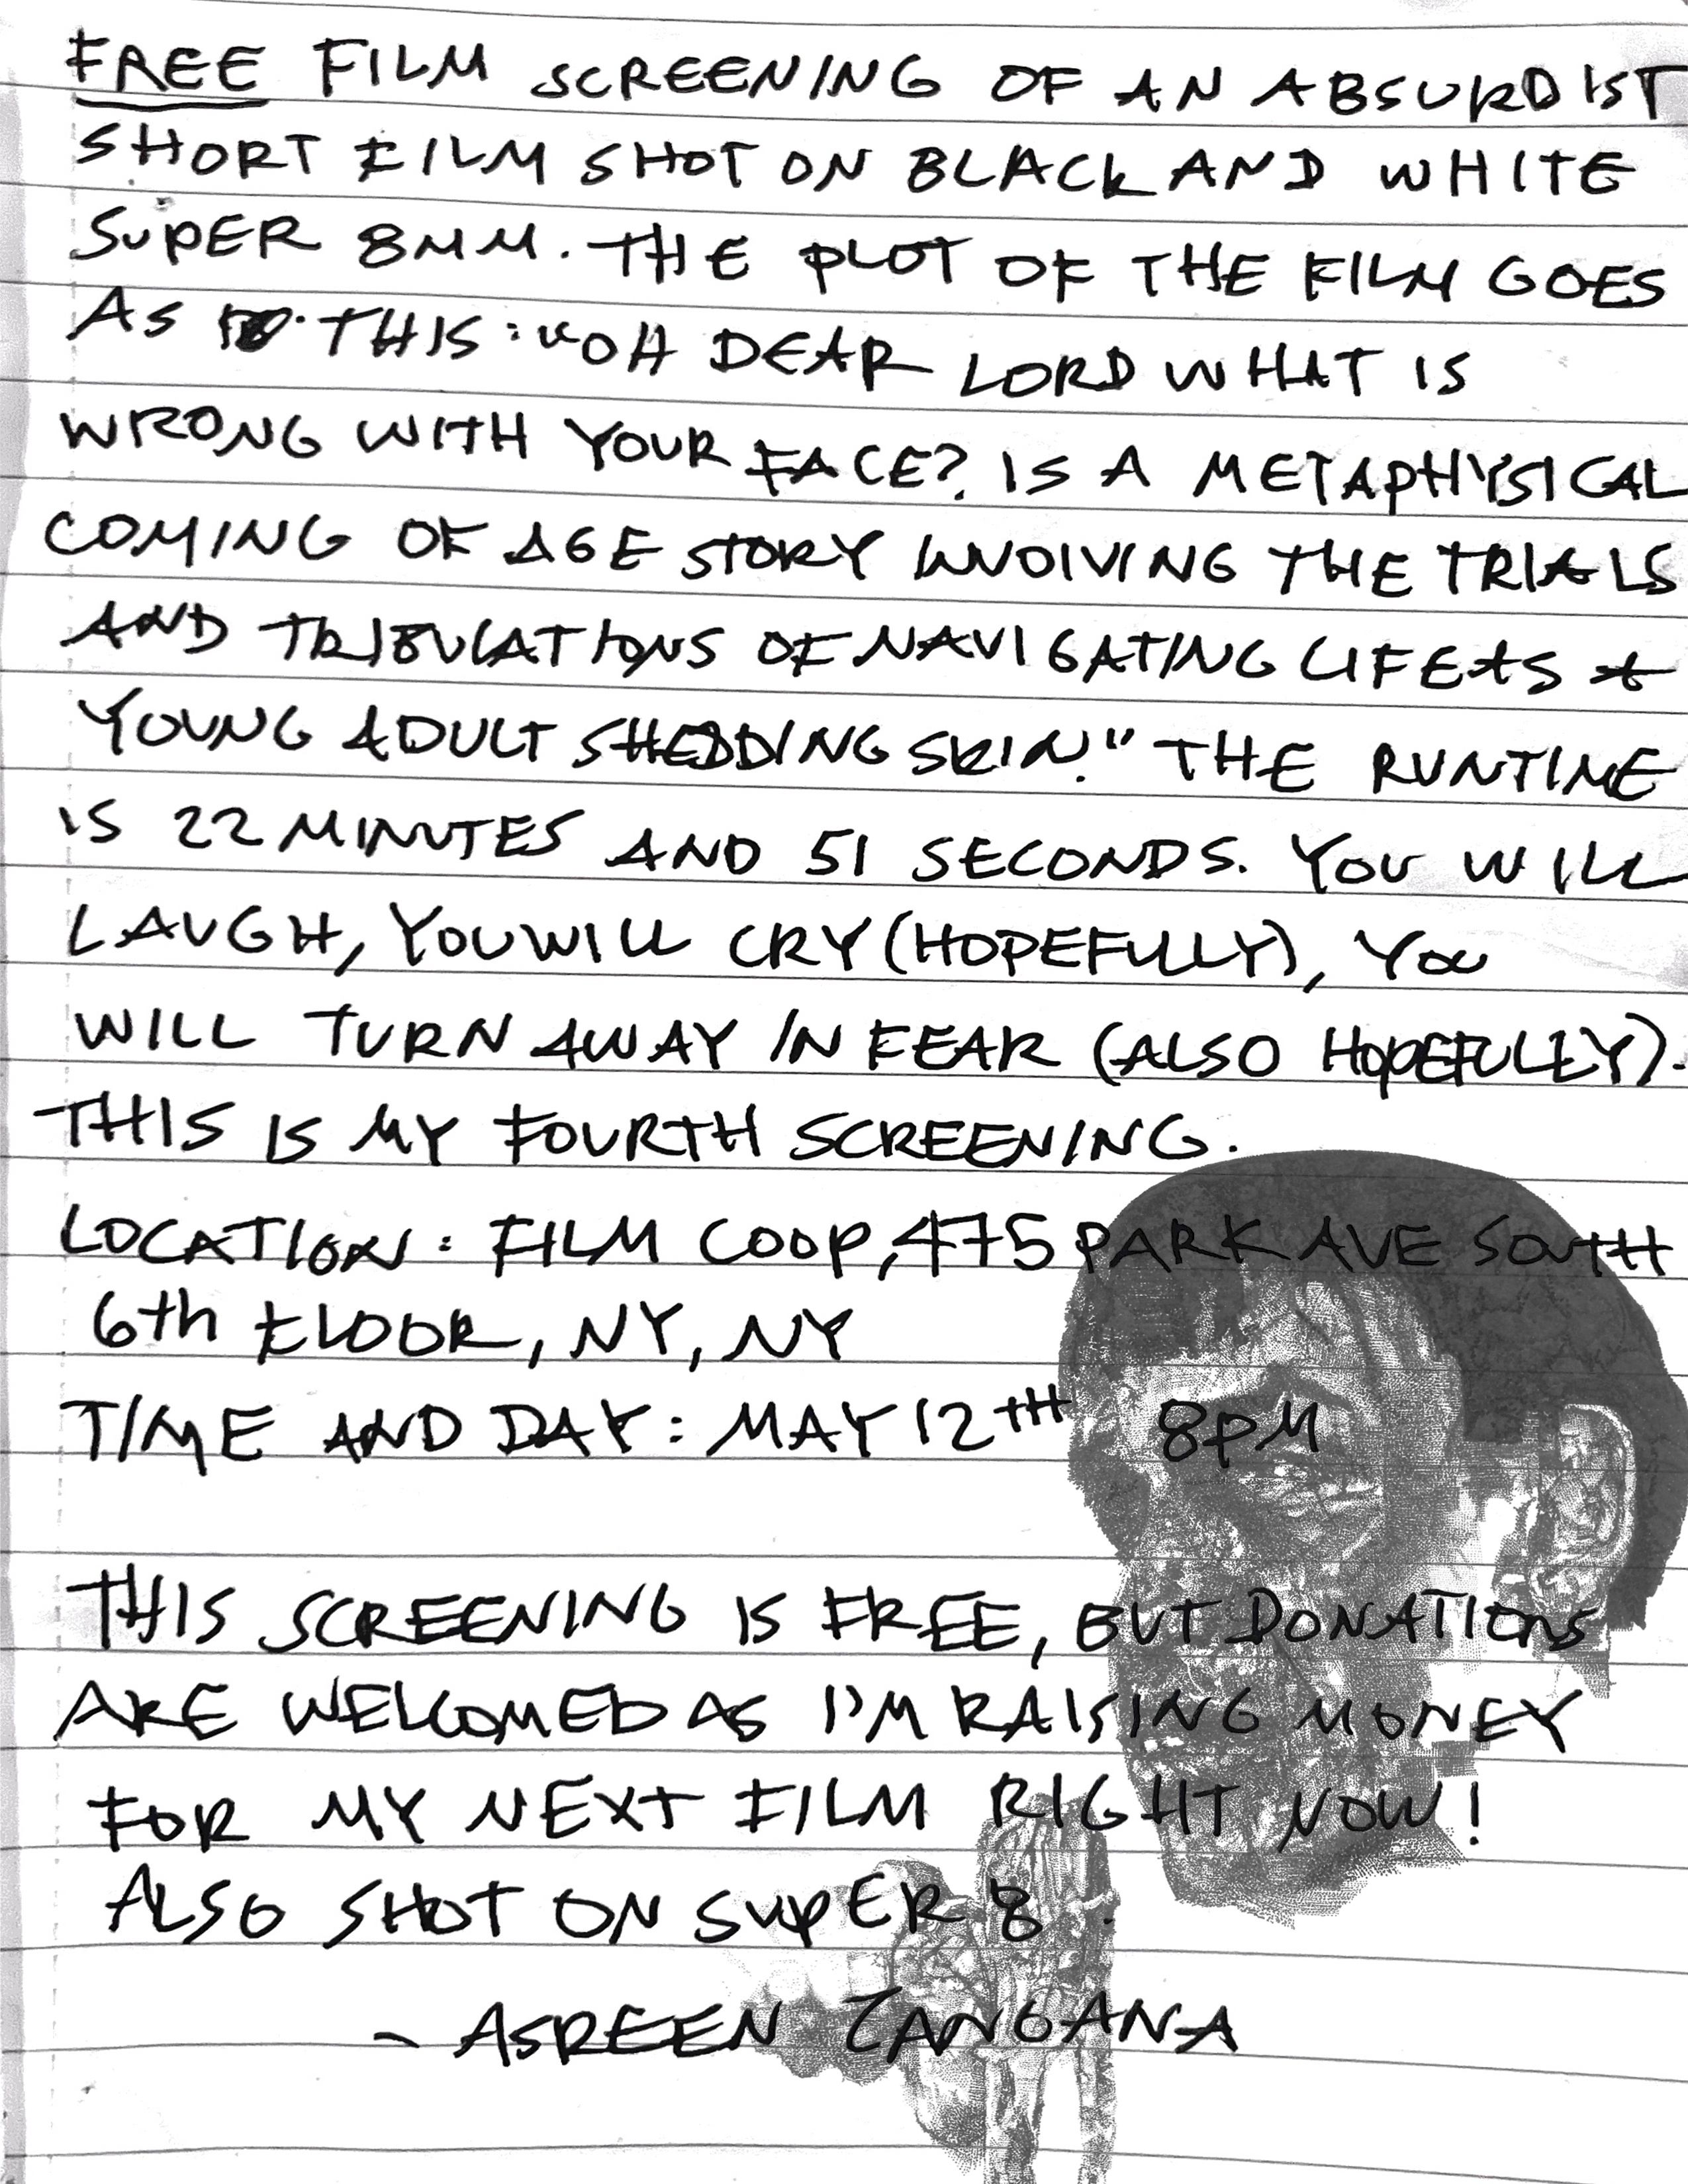 FREE FILM SCREENING OF AN ABSURDIST
SHORT FILM SHOT ON BLACK AND WHITE
SUPER 8MM. THE PLOT OF THE FILM GOES
AS THIS: "OH DEAR LORD WHAT IS
WRONG WITH YOUR FACE? IS A METAPHYSICAL
COMING OF AGE STORY INVOLVING THE TRIALS
AND TRIBULATIONS OF NAVIGATING LIFE AS A
YOUNG ADULT SHEDDING SKIN." THE RUNTIME
IS 22 MINUTES AND 51 SECONDS. YOU WILL
LAUGH, YOU WILL CRY (HOPEFULLY), YOU
WILL TURN AWAY IN FEAR (ALSO HOPEFULLY).
THIS IS MY FOURTH SCREENING.
LOCATION: FILM COOP, 475 PARK AVE SOUTH
6th FLOOR, NY, NY
TIME AND DAY: MAY 12TH 8PM
THIS SCREENING IS FREE, BUT DONATIONS
ARE WELCOMED AS I'M RAISING MONEY
FOR MY NEXT FILM RIGHT NOW!
ALSO SHOT ON SUPER 8.
- ASREEN ZANGANA